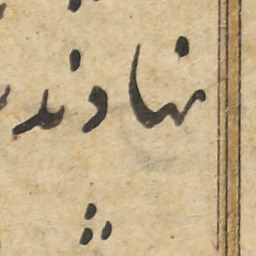 نهاوند